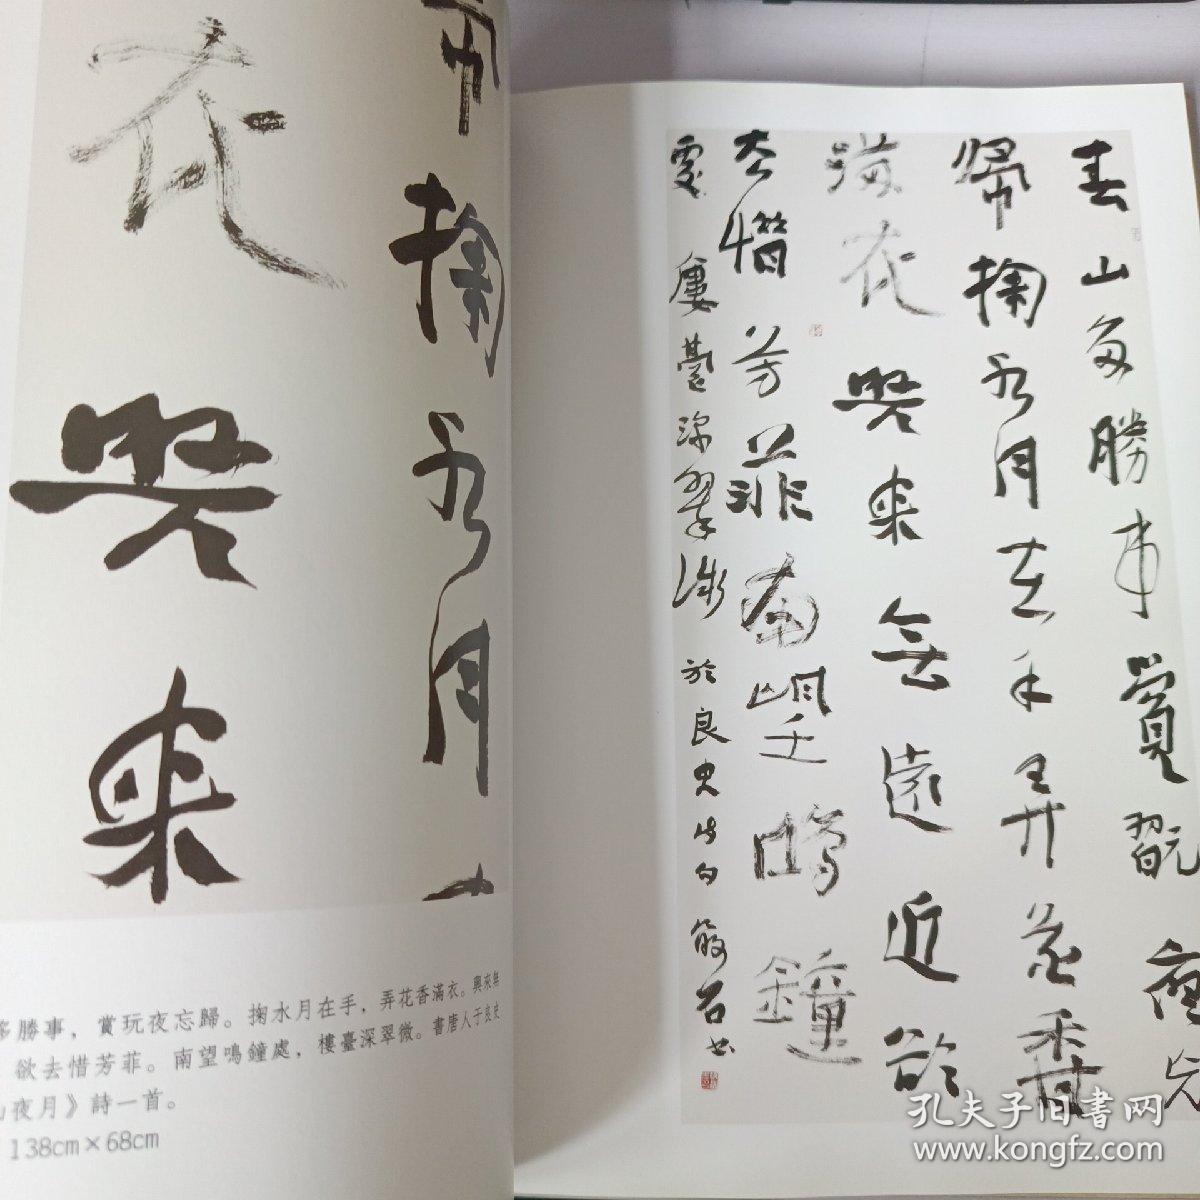 帚
掬水月
衣興来
多勝事，賞玩夜忘歸。掬水月在手，弄花香滿衣。興來無
欲去惜芳菲。南望鳴鐘處，樓臺深翠微。書唐人于良史
山夜月》詩一首。
138cm×68cm
春山多勝事賞翫夜忘
歸掬水月在手弄花香
滿衣興来無遠近欲
去惜芳菲南望鳴鐘
處樓臺深翠微 於良史诗句
孔夫子旧书网
www.kongfz.com